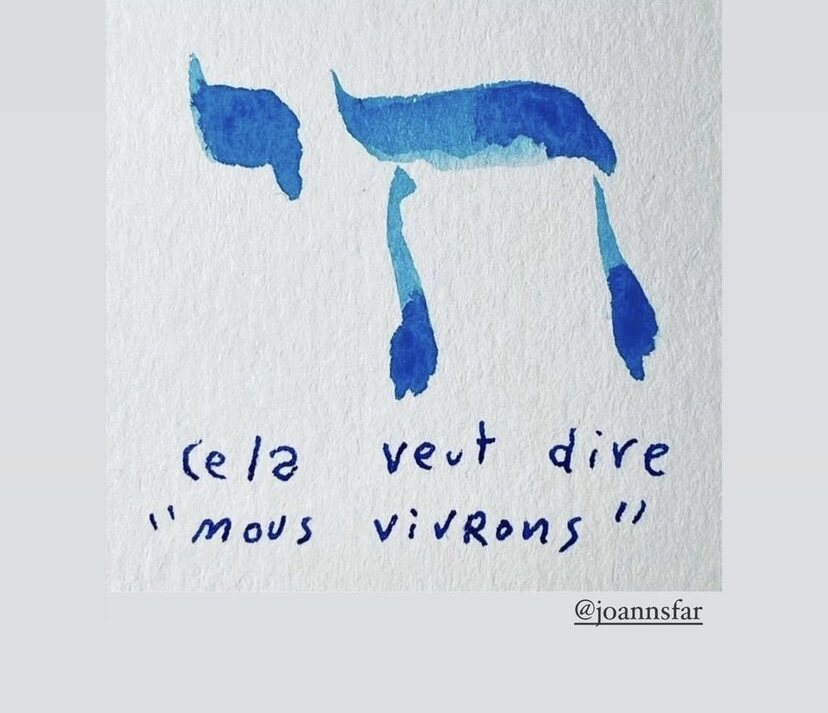 חי
cela veut dire
"nous vivrons"
@joannsfar